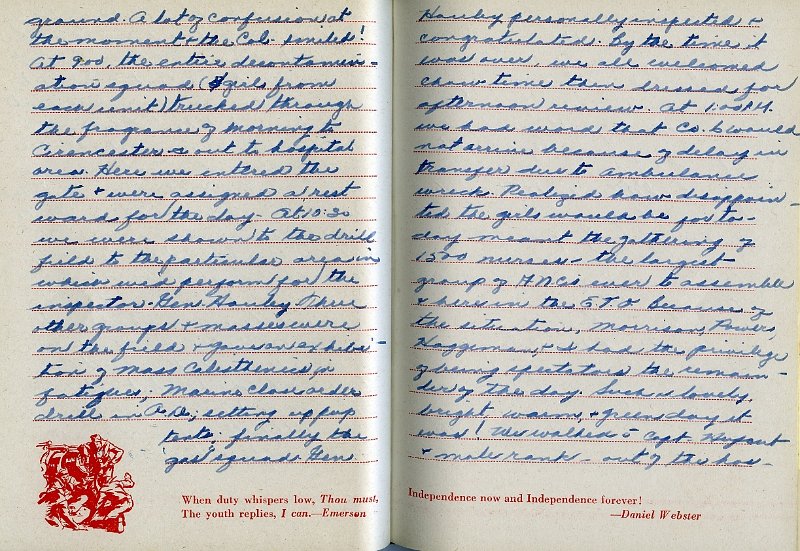 ground. A lot of confusion at
the moment & the Col. smiled!
At 900, the entire decontamin-
ation squad (8 girls from
each unit) trucked through
the fragrance of morning to
Cirencester & out to hospital
area. Here we entered the
gate & were assigned a rest
ward for the day. At 10:30
we were shown to the drill
field to the particular area in
which we'd perform for the
inspector. Gen. Hawley &
other groups & masses were
on the field & gave an exhibi-
tion of mass calisthenics in
fatigues; Marine close order
drill in O.D.; setting up pup
tents; finally the
gas squads. Gen.
When duty whispers low, Thou must,
The youth replies, I can.—Emerson
Hawley personally inspected &
congratulated. By the time it
was over, we all welcomed
chow time then dressed for
afternoon review. At 1:00 P.M.
we had word that Co. would
not arrive because of delay in
transfer due to ambulance
wreck. Realized how disappoin-
ted the girls would be for to-
day meant the gathering of
1500 nurses - the largest
group of ANCs ever to assemble
& here in the E.T.O. Because of
the situation, Morrison, Powers,
Haggeman, & I had the privilege
of being spectators the remain-
der of the day. Such a lovely,
bright, warm, & green day it
was! We walked c̄ Capt.
& made rank - out of the hos-
Independence now and Independence forever!
—Daniel Webster